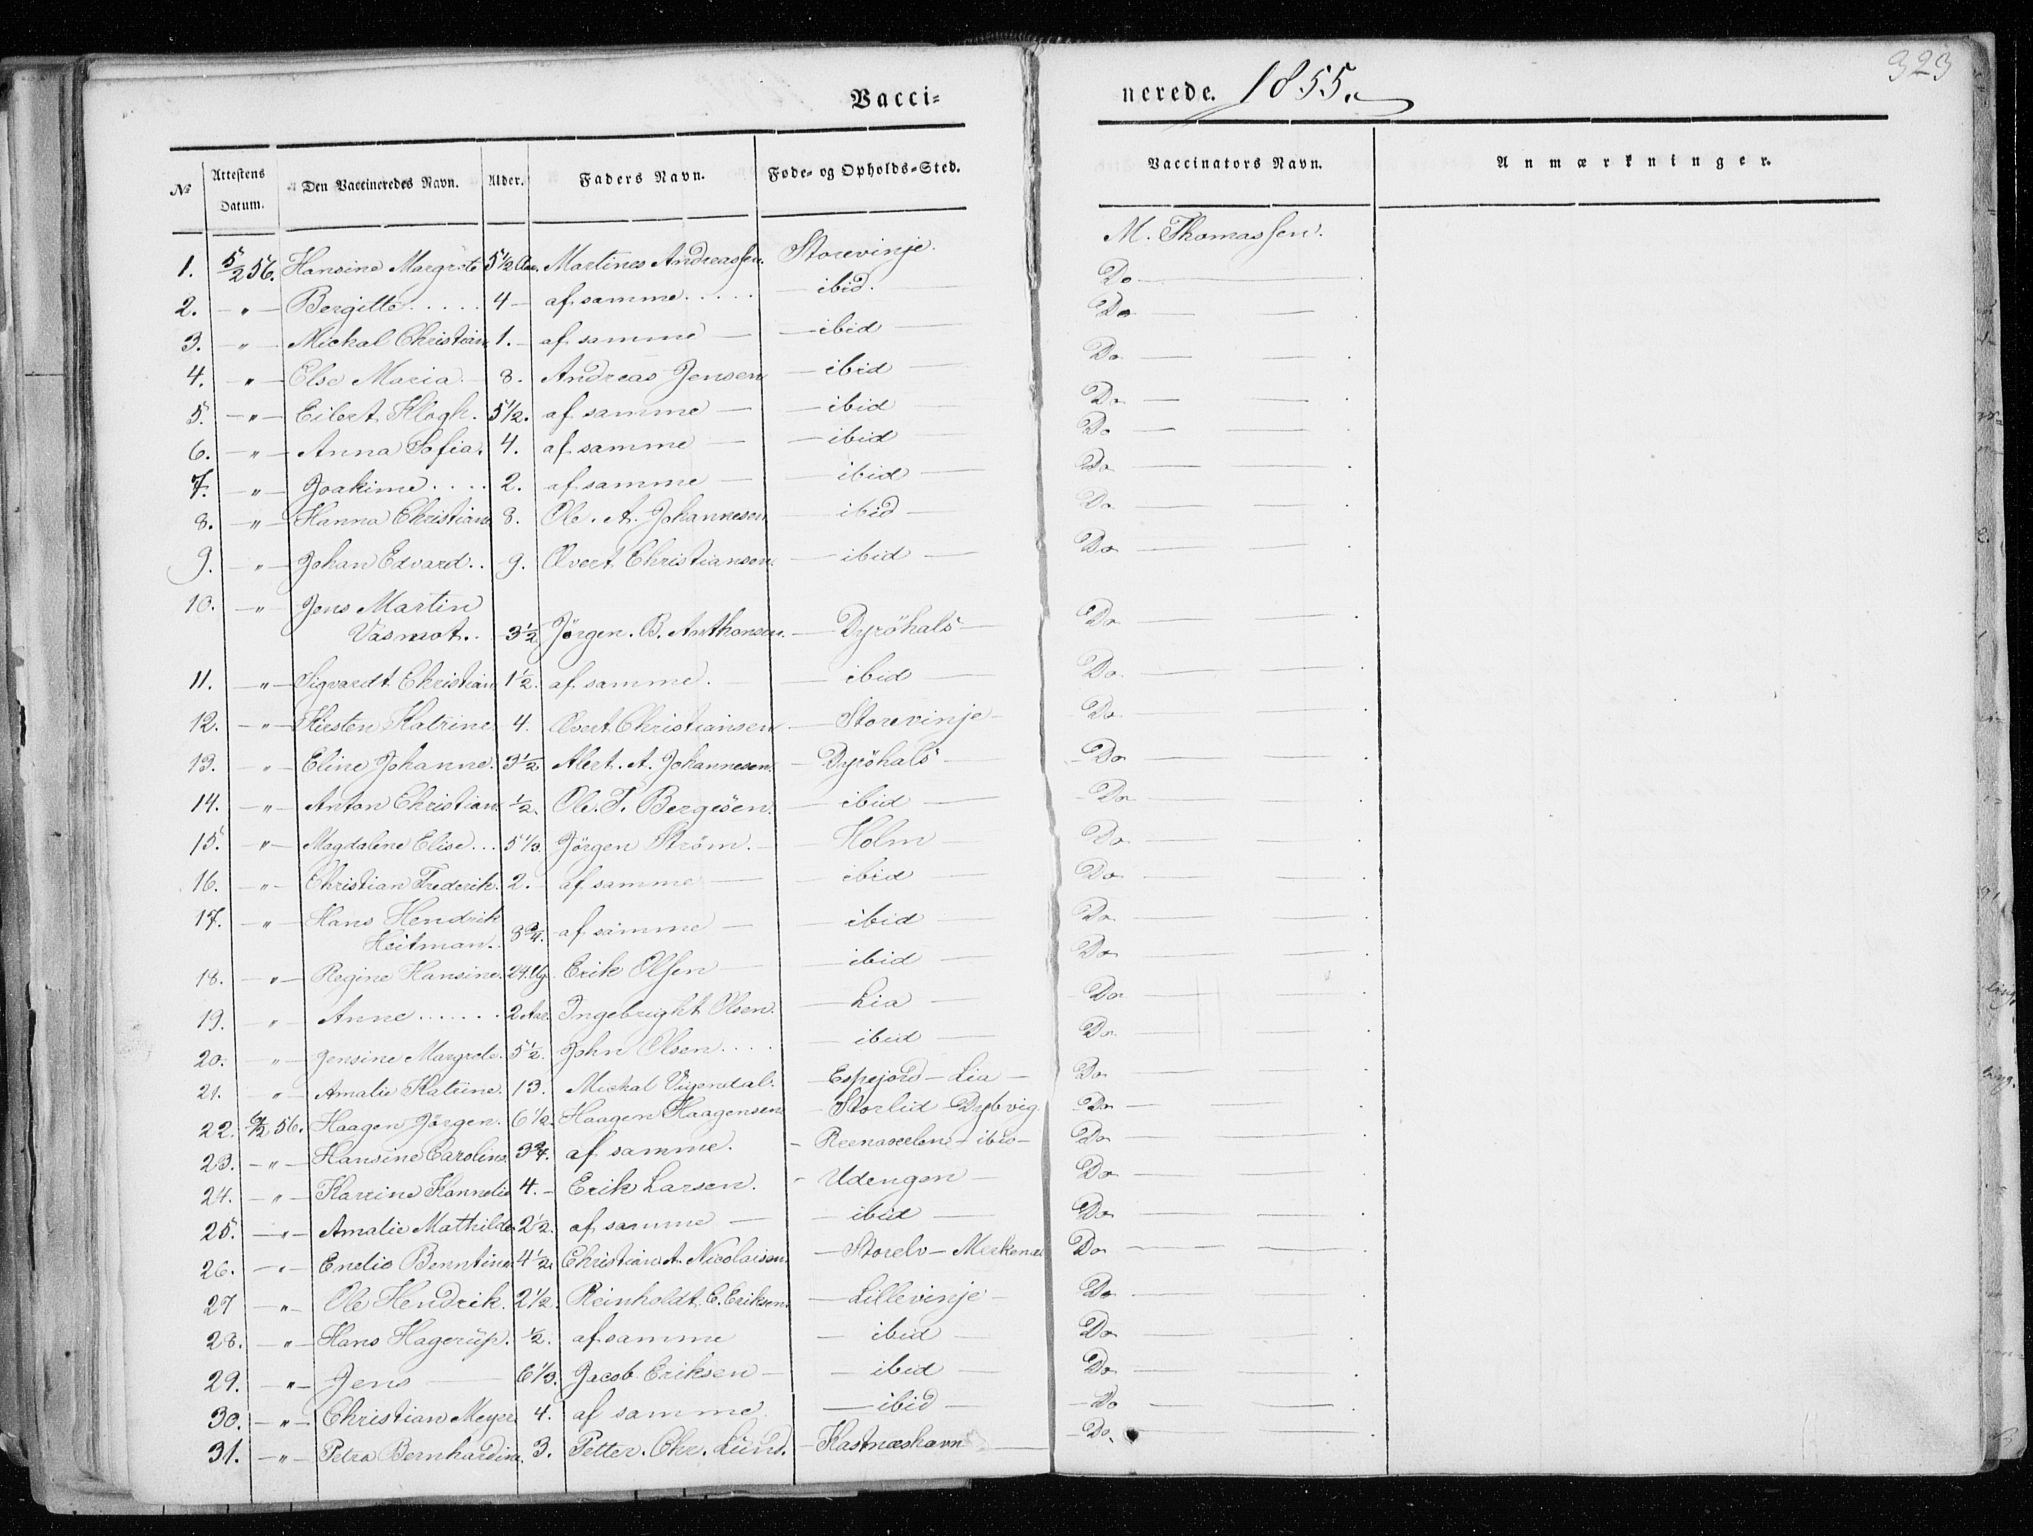 323
Vacci= nerede. 1855.
No Attestens Datum. Den Vaccineredes Navn. Alder. Faders Navn. Føde- og Opholds-Sted. Vaccinators Navn. Anmærkninger.
1. 5/2 56. Hansine Margrete 5 1/2 Aar. Martines Andreassen. Storevinje. M. Thomassen.
2. " Bergitte..... 4 af samme..... ibid. Do
3. " Mickal Christian 1. af samme ibid Do
4. " Else Maria 8. Andreas Jensen ibid Do
5. " Eilert Klogh. 5 1/2. af samme ibid Do
6. " Anna Sofia. 4. af samme ibid Do
7. " Joakime.... 2. af samme ibid Do
8. " Hanna Christian 8. Ole. A. Johannesen ibid Do
9. " Johan Edvard.. 9. Overt Christiansen. ibid Do
10. " Jens Martin
Vasmot.. 3 1/2 Jörgen. B. Anthonsen. Dyröhals Do
11. " Sigvardt Christian 1 1/2. af samme. ibid Do
12. " Kirsten Katrine 4. Overt Christiansen Storevinje Do
13. " Eline Johanne. 3 1/2 Alert. A. Johannesen. Dyröhals Do
14. " Anton Christian 1/2. Ole. T. Bergesen. ibid Do
15. " Magdalene Elise... 5 1/3. Jörgen Ström. Holm Do
16. " Christian Frederik. 2. af samme ibid Do
17. " Hans Hendrik
Heitman. 8 3/4. af samme ibid Do
18. " Regine Hansine. 24. Ug. Erik Olsen ibid Do
19. " Anne...... 2 Aar. Ingebright Olsen. Lia Do
20. " Jensine Margrete. 5 1/2. John Olsen.... ibid Do
21. " Amalie Katrine. 13. Mickal Vigendal. Espejord - Lia Do
22. 6/2 56. Haagen Jörgen. 6 1/2. Haagen Haagensen Storlid Dybvig. Do
23. " Hansine Caroline. 3 3/4. af samme. - ibid Do
24. " Karrine Kornelie 4. Erik Larsen. Udengen Do
25. " Amalie Mathilde 2 1/2. af samme ibid Do
26. " Enelie Benntine 4 1/2. Christian A. Nicolaisen. Storelv - Do
27 " Ole Hendrik. 2 1/2. Reinholdt. E. Eriksen. Lillevinje Do
28. " Hans Hagerup. 1/2. af samme ibid Do
29. " Jens 6 1/3. Jacob Eriksen ibid Do
30. " Christian Meyer 4. af samme ibid Do
31. " Petra Bernhardine. 3. Petter. Chr. Lund. Kastnæshavn Do.